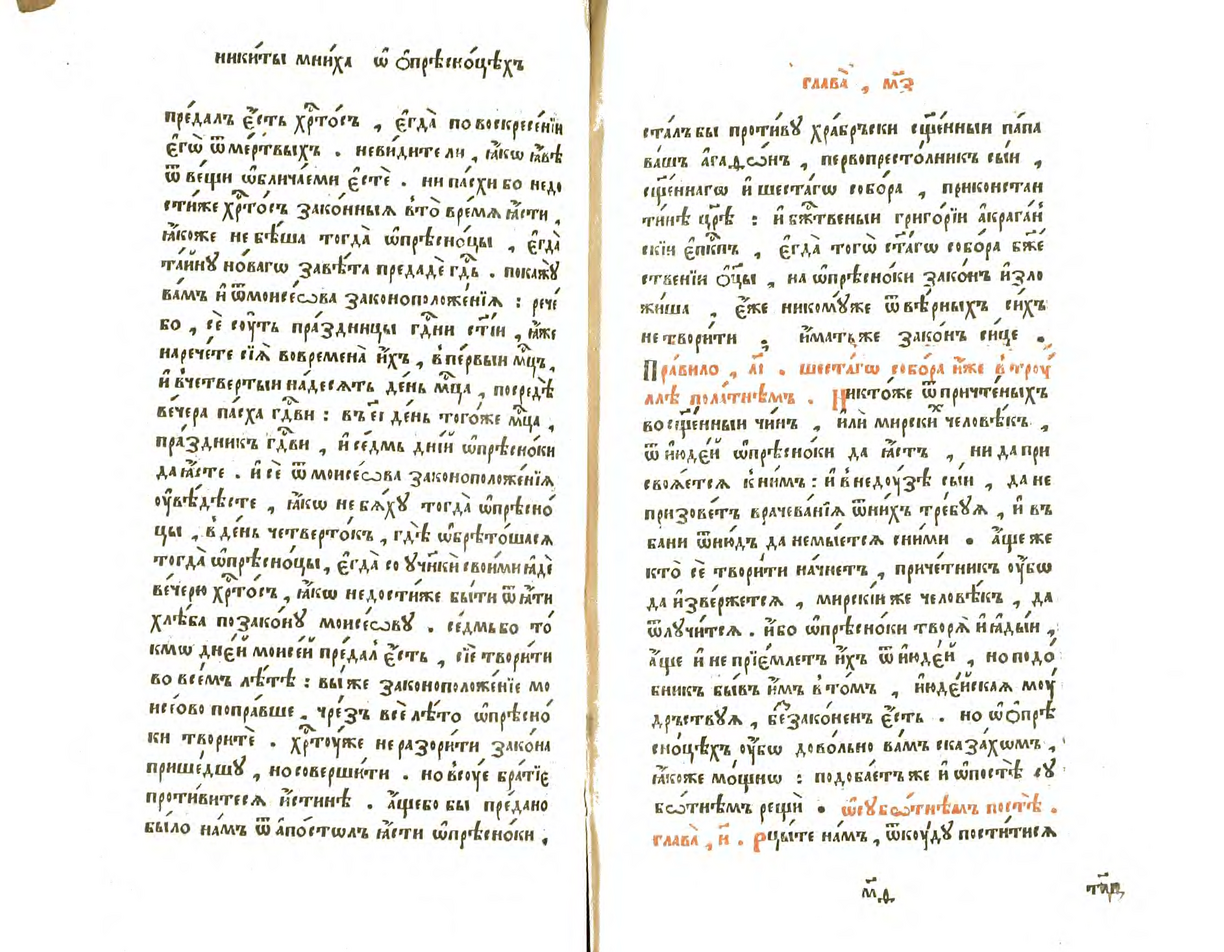 никѝты мни́ха ѡ҆ ѻ҆прѣсно́цѣхъ
пре́далъ є҆́сть хрⷭ҇то́съ , є҆гда̀ по воскресе́нїи
є҆гѡ̀ ѿ ме́ртвыхъ . неви́дите ли , ꙗ҆́кѡ ꙗ҆́вѣ
ѿ ве́щи ѡ҆блича́еми є҆стѐ . ни па́схи бо недо
сти́же хрⷭ҇то́съ зако́нныѧ в̾то̀ вре́мѧ ꙗ҆́сти ,
ꙗ҆́коже не бѣ́ша тогда̀ ѡ҆прѣсно́цы , є҆гда̀
та́йну но́вагѡ завѣ́та предадѐ гдⷭ҇ь . покажꙋ̀
ва́мъ и҆ ѿ моисе́ѡва законоположе́нїѧ : рече́
бо , сѐ сꙋ́ть пра́здницы гдⷭ҇ни ст҃і́и , ꙗ҆̀же
нарече́те сїѧ̀ во времена̀ и҆́хъ , в̾пе́рвыи мцⷭ҇ъ ,
и҆ в̾четве́ртыи на́десѧть де́нь мцⷭ҇а , посредѣ̀
ве́чера па́сха гдⷭ҇ви : въ є҃і де́нь тогѡ́же мцⷭ҇а ,
пра́здникъ гдⷭ҇ви , и҆ се́дмь дні́й ѡ҆прѣсно́ки
да ꙗ҆́сте . и҆ сѐ ѿ моисе́ѡва законоположе́нїѧ
ᲂу҆вѣ́дѣсте , ꙗ҆́кѡ не бѧ́хꙋ тогда̀ ѡ҆прѣсно́
цы , в̾ де́нь четверто́къ , гдѣ̀ ѡ҆брѣто́шасѧ
тогда̀ ѡ҆прѣсно́цы , є҆гда̀ со ᲂу҆чн҃кѝ свои́ми ꙗ҆дѐ
ве́черю хрⷭ҇то́съ , ꙗ҆́кѡ недости́же бы́ти ѿ ꙗ҆́сти
хлѣ́ба по зако́нꙋ моисе́ѡвꙋ . се́дмь бо то́
кмѡ дне́й моисе́й преда́л є҆́сть , сїѐ твори́ти
во все́мъ лѣ́тѣ : вы́ же законоположе́нїе мо
исе́ово попра́вше , чре́зъ всѐ лѣ́то ѡ҆прѣсно́
ки творитѐ . хрⷭ҇тꙋ́ же не разори́ти зако́на
прише́дшꙋ , но соверши́ти . но всꙋ́е бра́тїе
проти́витесѧ и҆́стинѣ . а҆́ще бо бы пре́дано
бы́ло на́мъ ѿ а҆по́столъ ꙗ҆́сти ѡ҆прѣсно́ки ,
глава̀ , м҃з
ста́лъ бы проти́вꙋ хра́брьски сщ҃е́нныи па́па
ва́шъ а҆гаѳѡ́нъ , первопресто́лникъ сы́и ,
сщ҃е́ннагѡ и҆ шеста́гѡ собо́ра , при конста́н
ти́нѣ цр҃ѣ̀ : и҆ бжⷭ҇твеныи григо́рїи а҆крага́н
скїи є҆пⷭ҇кпъ , є҆гда̀ тогѡ̀ ст҃а́гѡ собо́ра бж҃е
ственїи ѻ҆ц҃ы̀ , на ѡ҆прѣсно́ки зако́нъ и҆зло
жи́ша , є҆́же никомꙋ́же ѿ вѣ́рныхъ си́хъ
не твори́ти ; и҆́мать же зако́н си́це .
Пра́вило , а҃і . шеста́гѡ собо́ра и҆́же в̾ трꙋ́
ллѣ пола́тнѣмъ . Никто́же ѿ причте́ныхъ
во сщ҃е́нныи чи́нъ , и҆лѝ мирски́х человѣ́къ ,
ѿ и҆юде́й ѡ҆прѣсно́ки да ꙗ҆́стъ , ни да при
своѧ́етсѧ к̾ ни́мъ : и҆ в̾ недꙋ́зѣ сы́и , да не
призове́тъ врачева́нїѧ ѿ ни́хъ тре́бꙋѧ , и҆ въ
ба́ни ѿню́дъ да не мы́етсѧ сни́ми . а҆́ще же
кто̀ сѐ твори́ти начне́тъ , приче́тник ᲂу҆́бѡ
да и҆зве́ржетсѧ , мирскі́и же человѣ́къ , да
ѿлꙋчи́тсѧ . и҆́бо ѡ҆прѣсно́ки творѧ̀ и҆ ꙗ҆ды́и ,
а҆́ще и҆ не прїе́млетъ и҆́хъ ѿ и҆юде́й , но подо́
бникъ бы́въ и҆́мъ в̾ то́мъ , и҆юде́йская мꙋ́
дрьствꙋѧ , беззако́нен є҆́сть . но ѡ҆ ѻ҆прѣ
сно́цѣхъ ᲂу҆́бѡ дово́льно ва́мъ сказа́хѡмъ ,
ꙗ҆́коже мо́щнѡ : подоба́етъ же и҆ ѡ҆ по́стѣ сꙋ
бѡ́тнѣмъ рещѝ . ѡ҆ сꙋбѡ́тнѣмъ по́стѣ .
глава̀ , н҃ . Рцы́те на́мъ , ѿкꙋ́дꙋ пости́тисѧ
м҃д